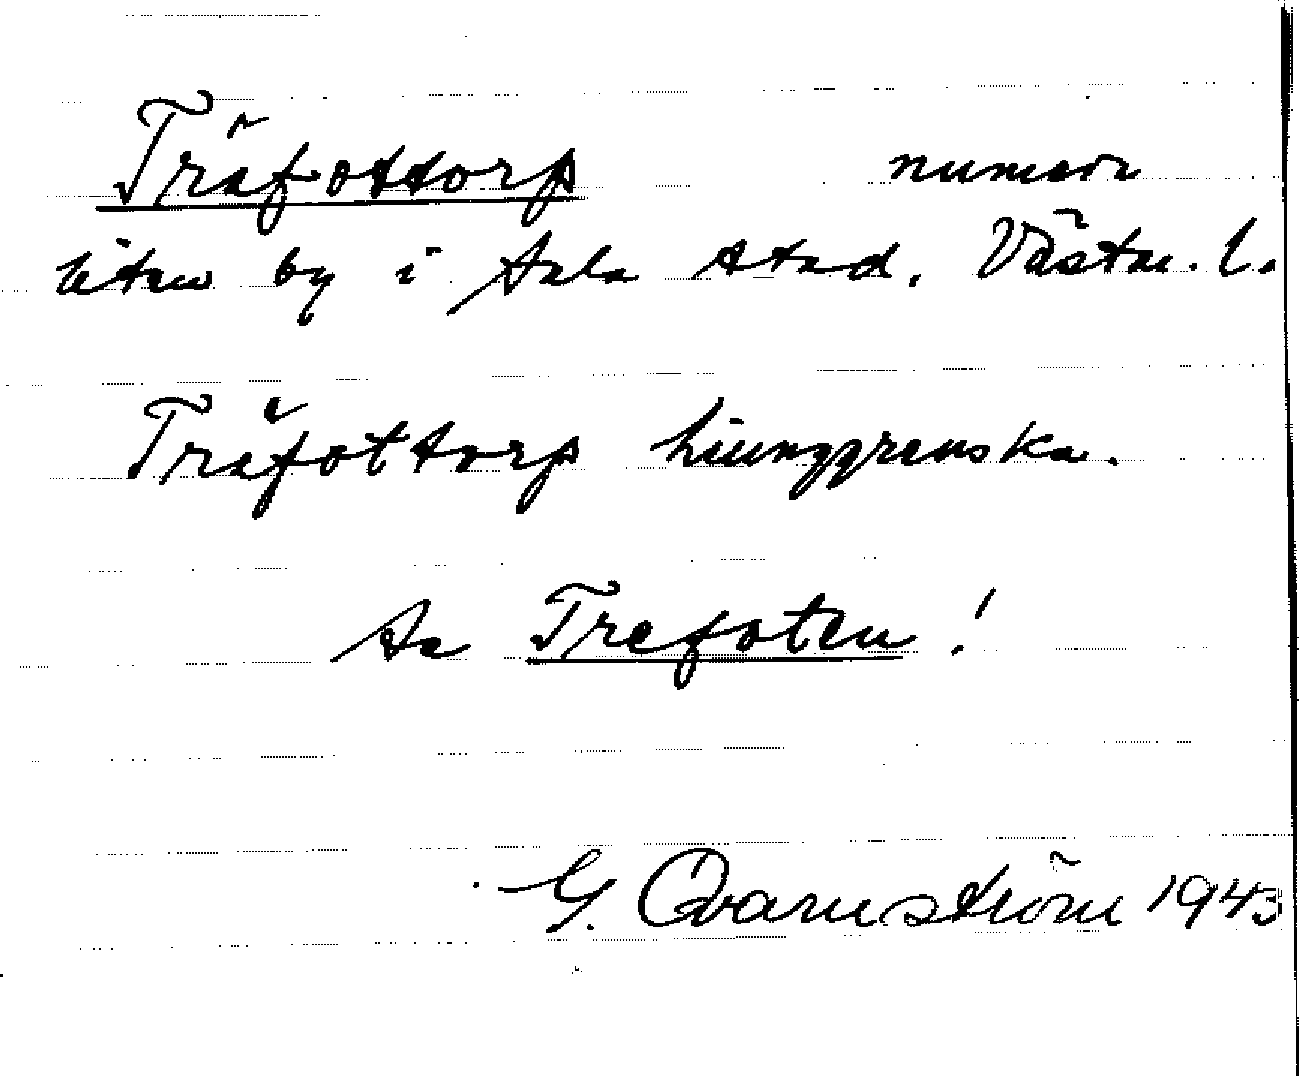 Träfottorp numera
liten by i Sala stad, Västm. l.
Träfottorp Liunggrenska.
Se Trefoten!
G. Qvarnström 1943